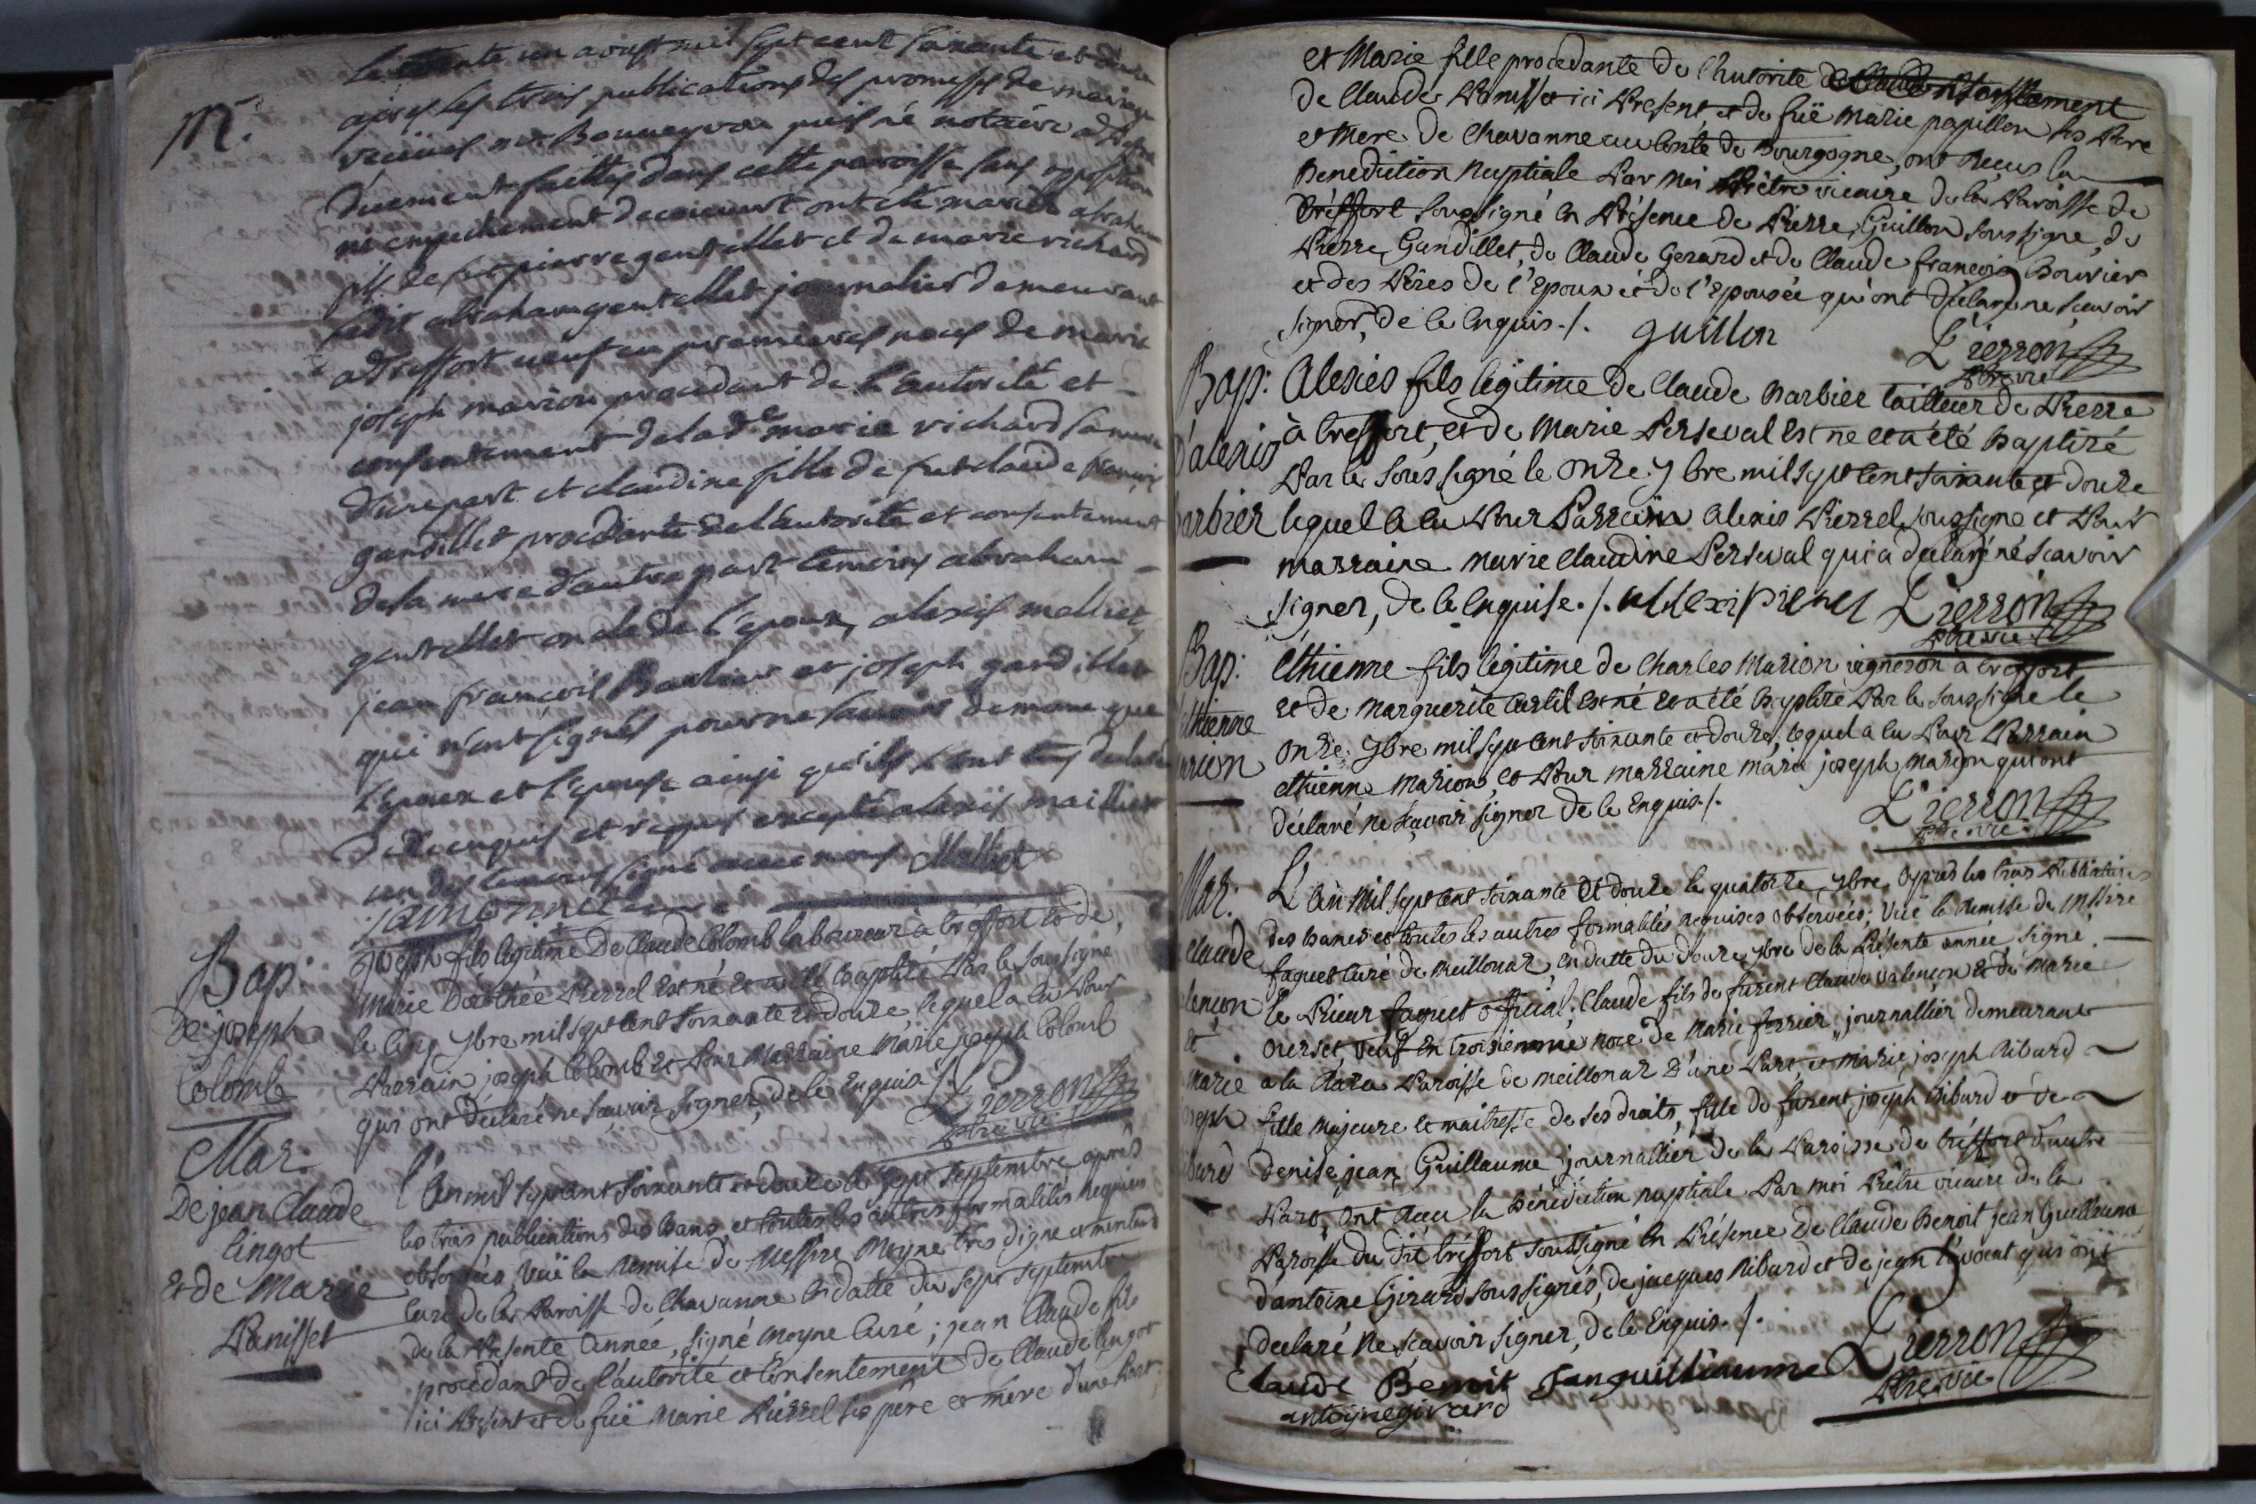 M.
le trente un aoust mil sept cent soixante et douze
apres les trois publications des promesses de mariage
duement faittes dans cette paroisse sans opposition
ni empechement decouvert ont été mariés abraham
fils de feu pierre gentellet et de marie richard
ledit abraham gentellet journalier demeurant
a treffort veuf en premieres noces de marie
joseph marion procedant de l'autorité et
consentement de lad.e marie richard sa mere
d'une part et claudine fille de feu claude françois
gandillet procedante de l'autorité et consentement
de sa mere d'autre part temoins abraham
gentellet oncle de l'epoux, alexis molliet
jean françois et joseph gandillet
qui n'ont signés pour ne savoir de meme que
l'epoux et l'epouse ainsi qu'ils l'ont tous declaré
de ce enquis et requis excepté alexis maillet
un des temoins signé avec nous Molliet
Bap:
De joseph
Colomb
joseph fils légitime De Claude Colomb laboureur à treffort et de
Marie Dorothée Pierrel est né et a été baptisé Par le soussigné
le cinq 7bre mil sept cent soixante et douze, lequel a eu Pour
Parrain joseph Colomb et Pour Marraine Marie joseph Colomb
qui ont déclaré ne sçavoir signer, de ce Enquis ./.
Pierron
Ptre vic.
Mar.
De jean Claude
lingot
Et de Marie
Panisset
L'an mil sept cent soixante et douze le sept septembre après
les trois publications des bans, et toutes les autres formalités requises
observées, vuë la remise de Messire Moyne très digne et meritant
Curé de la Paroisse de Chavanne en datte du sept septembre
de la Présente année, signé Moyne Curé ; jean Claude fils
procédant de l'autorité et consentement de Claude lingot
ici Présent et de fuë Marie Pierrel ses père et mère d'une Part
et Marie fille procedante de l'autorité
de Claude Panisset ici Présent, et de fuë Marie papillon ses Père
et Mere de Chavanne au Conté de Bourgogne, ont reçus la
Benediction Nuptiale Par moi Prêtre vicaire de la Paroisse de
tréffort soussigné en Présence de Pierre Guillon soussigné, de
Pierre Gandillet, de Claude Gerard et de Claude françois Bouvier
et des Pères de l'Epoux et de l'Epousée qu'ont déclaré ne scavoir
signer, de ce enquis ./. guillon
Pierron
Ptre vic
Bap:
D'alexis
barbier
Alexies fils légitime de Claude Barbier tailleur de Pierre
à treffort, et de Marie Perseval est né et a été baptisé
Par le soussigné le onze 7bre mil sept cent soixante et douze
lequel a eu Pour Parrain alexis Pierrel soussigné et Pour
marraine marie Claudine Perseval qui a déclaré ne scavoir
signer, de ce enquise ./. Alexi pierrel Pierron
Ptre vic.
Bap:
Ethienne
marion
Ethienne fils légitime de Charles Marion vigneron à treffort
et de Marguerite curtil est né et a été baptisé Par le soussigné le
onze 7bre mil sept cent soixante et douze, lequel a eu Pour Parrain
ethienne Marion, et Pour marraine marie joseph marion qui ont
déclaré ne sçavoir signer de ce Enquis ./.
Pierron
Ptre vic.
Mar.
Claude
valençon
et
marie
joseph
Ribard
L'an mil sept cent soixante et douze le quatorze 7bre, après les trois Publications
des bancs et toutes les autres formalités requises observées ; vuë la remise de Messire
faguet Curé de Meillonaz, en datte du douze 7bre de la Présente année signé
le Prieur faguet official ; Claude fils de furent Claude valençon et de Marie
Oerset, veuf en troisieme noce de Marie ferrier, journallier demeurant
a la Paroisse de meillonaz d'une Part, et marie joseph Ribard
fille majeure et maitresse de ses droits, fille de furent joseph Ribard et de
denise jean Guillaume journallier de la Paroisse de tréffort d'autre
Part, ont reçu la bénédiction nuptiale Par moi Prêtre vicaire de la
Paroisse du dit tréffort soussigné en Présence de Claude Benoit jean Guillaume
d'antoine Girard soussignés, de jacques Ribard et de jean qui ont
declaré ne sçavoir signer, de ce Enquis ./.
Claude Benoit Janguilliaume Pierron
antoyne girard
Ptre. vic.